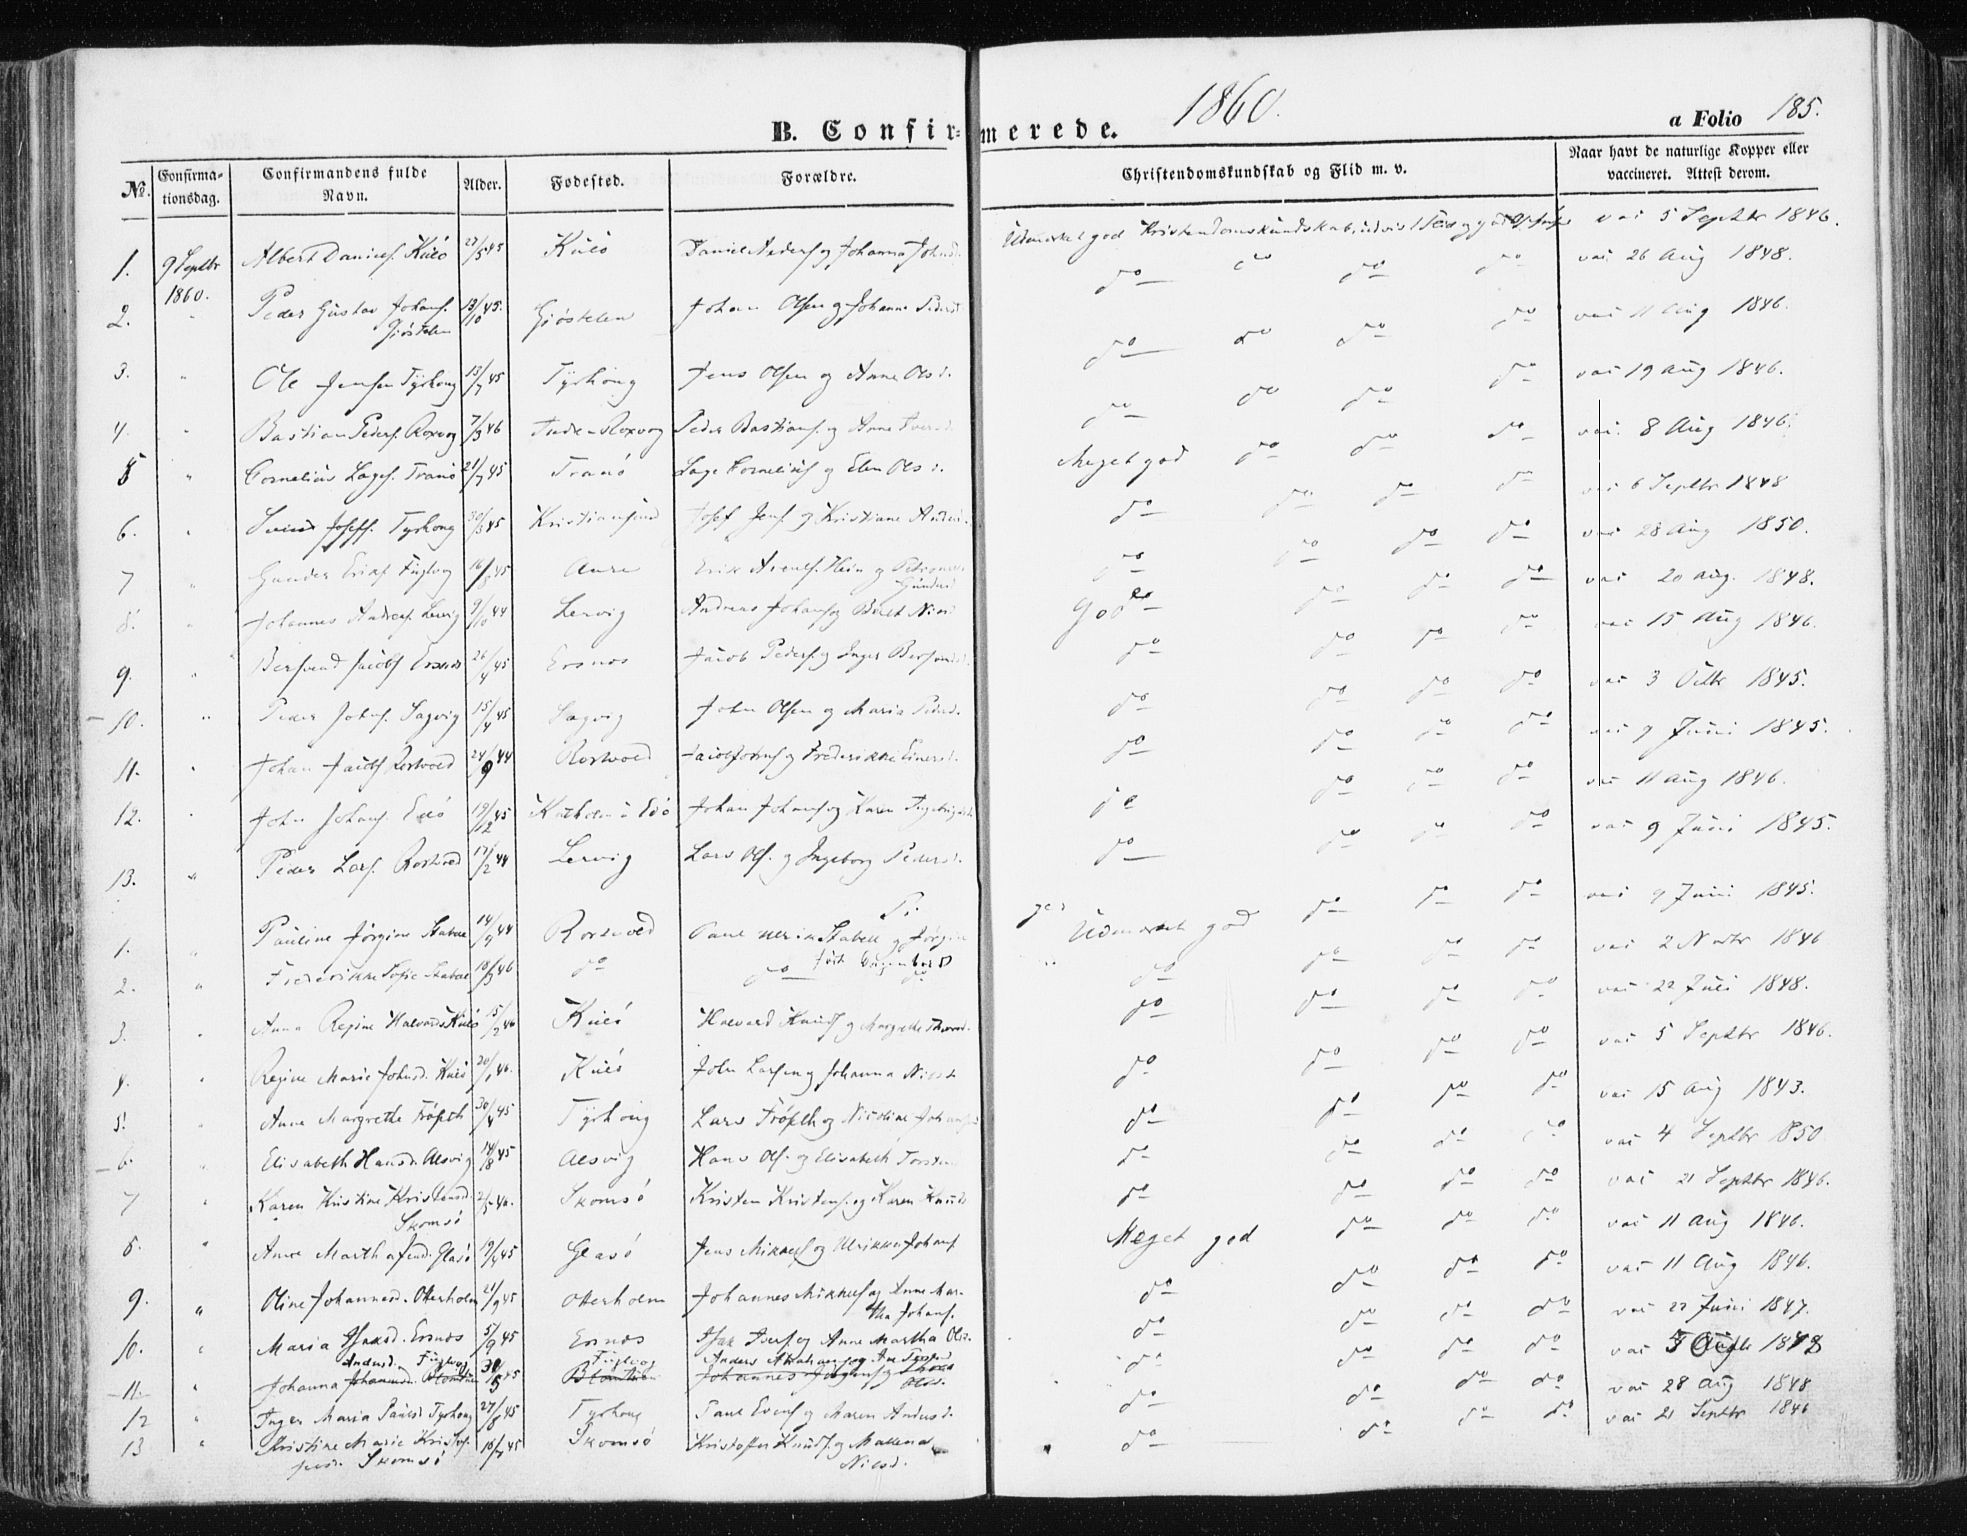 1860.
B. Confir= merede.
a Folio 185.
No. Confirma-tionsdag. Confirmandens fulde Navn. Alder. Fødested. Forældre. Christendomskundskab og Flid m. v. Naar havt de naturlige Kopper eller vaccineret. Attest derom.
1. 9 Septbr 1860. Albert Daniels. Kulö 27/5 45 Kulö Daniel Anders. og Johanna Johnsd. Udmærket god Kristendomskundskab, udvist Flid og god vac 5 Septbr 1846.
2. " Peder Gustav Johans. Gjöstelen 13/10 45. Gjöstelen Johan Olsen og Johanna Pedersd. do do do do vac 26 Aug 1848.
3. " Ole Jensen Tyrhoug 13/7 45 Tyrhoug Jens Olsen og Anne Olsd. do do do do vac 11 Aug 1846.
4. " Bastian Peders. Roxvog 7/3 46 Indre Roxvog Peder Bastians. og Anne do do do do vac 19 Aug 1846.
5 " Cornelius Lages. Tranö 21/7 45 Tranö Lage Cornelius og Elen Olsd. Meget god do do do vac. 8 Aug 1846.
6. " Josefs. Tyrhoug 30/3 45 Kristiansund Josef Jens. og Kristiane Andersd. do do do do vac 6 Septbr 1848
7 " Gunder Eriks. Fuglvog 16/8 45 Aure Erik Arents. Hein og Petronelle Gundersd do do do do vac 28 Aug 1850.
8. " Johannes Andreas. Lervig 9/10 44 Lervig Andreas Johans. og Beret Nilsd God do do do vac 20 Aug. 1848.
9. " Bersvend Jacobs. Ersnes 26/4 45 Ersnes Jacob Peders. og Inger Bersvendsd. do do do do vac 15 Aug 1846.
10. " Peder Johns. Sagvig 15/4 45 Sagvig John Olsen og Maria Pedersd. do do do do vac 3 Octbr 1845.
11. " Johan Jacobs. Rostvold 24/9 44 Rostvold Jacob Johns. og Frederikke Einersd. do do do do vac 9 Juni 1845.
12. " John Johans. Edö 19/12 45 Kulholm i Edö Johan Johans. og Karen do do do do vac 11 Aug 1846.
13. " Peder Lars. Rostvold 17/2 44 Lervig Lars Ols. og Ingeborg Pedersd. do do do do vac 9 Juni 1845.
1. " Pauline Jörgine Stabel 14/9 44 Rostvold Paul Stabell og Jörgine Udmærket god do do do vac 9 Juni 1845.
2. " Frederikke Sofie Stabel 18/3 46 do do do do do do do vac 2 Novbr 1846
3. " Anna Regine Halvards. Kulö 15/2 46 Kulö Halvard Knuds. og Margrethe do do do do vac 22 Juli 1848.
4. " Regine Marie Johnsd. Kulö 20/1 46. Kulö John Larsen og Johanna Nilsd. do do do do vac 5 Septbr 1846.
5. " Anne Margrethe Fröseth 30/4 45 Tyrhoug Lars Fröseth og Nicoline do do do do vac 15 Aug 1843.
6. " Elisabeth Hansd. Alsvig 14/8 45 Alsvig Hans Ols. og Elisabeth do do do do vac 4 Septbr 1850
7 " Karen Kristine Kristensd. Skomsö 2/5 46. Skomsö Kristen Kristens. og Karen Knudsd. do do do do vac 21 Septbr 1846.
8. " Anne Martha Jensd. Glasö 19/4 45 Glasö Jens Mikkels. og Ulrikke Johans. Meget god do do do vac 11 Aug 1846.
9. " Oline Johannesd. Otterholm 21/9 45 Otterholm Johannes Mikkels. og Anne Martha Johans. do do do do vac 11 Aug 1846.
10. " Maria Isaksd. Ersnes 5/9 45 Ersnes Isak Ivers. og Anne Martha Olsd. do do do do vac 22 Juni 1847.
11. " Johanna Andersd. Fuglvog 30/5 45 Fuglvog Anders Abrahams. og do do do do vac 3 1848
12 " Inger Maria Paulsd Tyrhoug 27/8 45 Tyrhoug Paul Evens. og Maren Andersd. do do do do vac 28 Aug 1848
13 " Kristine Marie Kristofersd. Skomsö 16/7 45 Skomsö Kristoffer Knuds. og Mallena Nilsd. do do do do vac 21 Septbr 1846